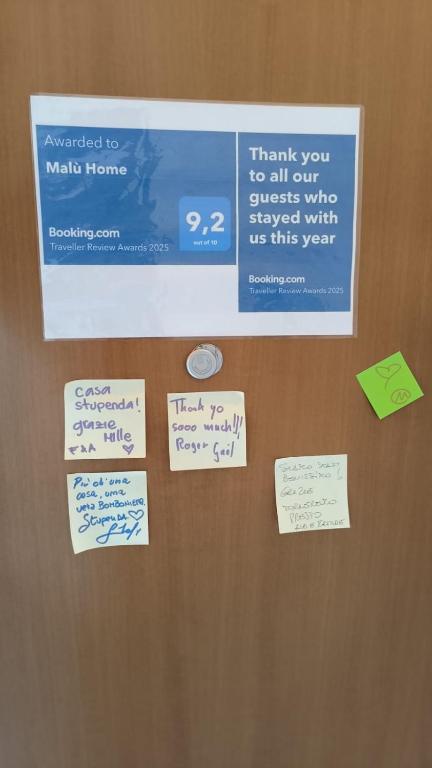 Awarded to
Malù Home
9,2
out of 10
Booking.com
Traveller Review Awards 2025
Thank you
to all our
guests who
stayed with
us this year
Booking.com
Traveller Review Awards 2025
Casa
stupenda!
grazie
Mille
F&A
Thank yo
sooo much!!!
Roger
Gail
Più di una
casa, una
vera BOMBONIERA.
Stupenda
GRAZIE
PRESTO